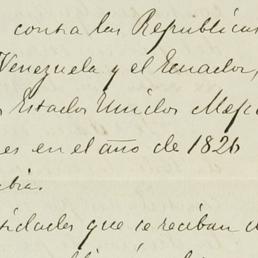 contra las Republicas
Venezuela y el Ecuador,
Estados Unidos
es en el año de 1826
bia.
idades que se reciban